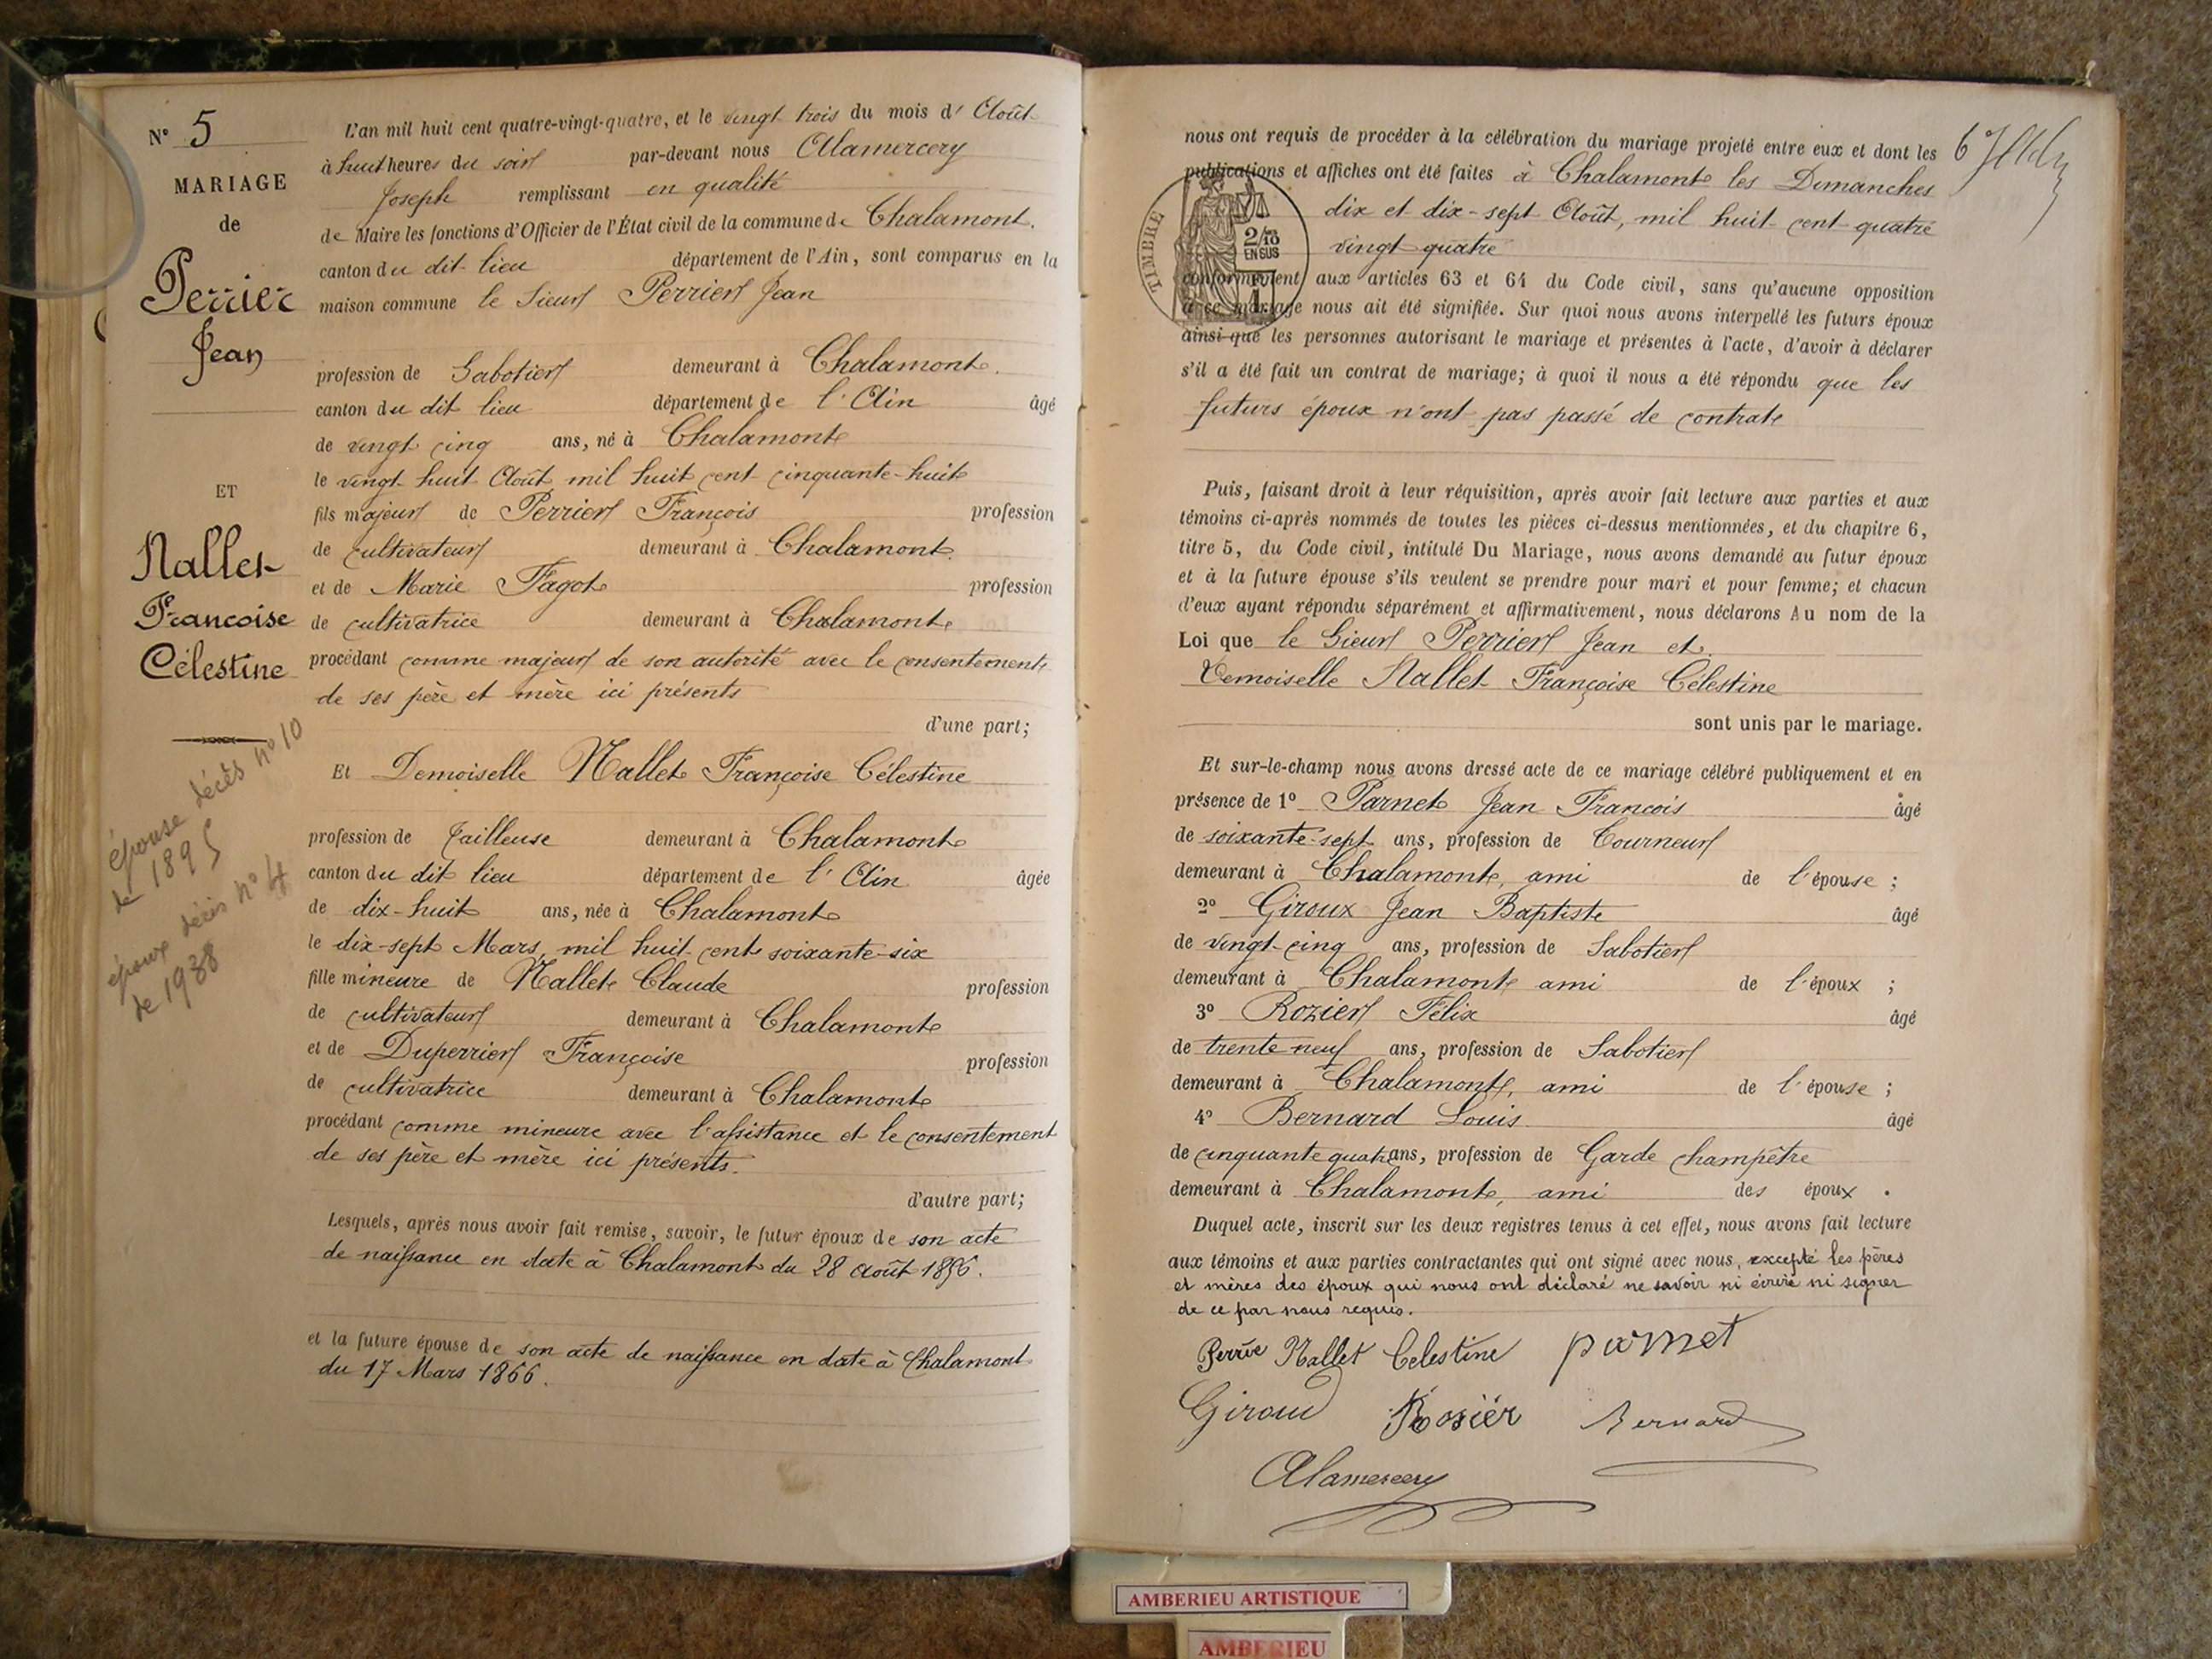 N° 5
MARIAGE
de
Perrier
Jean
ET
Nallet
Francoise
Célestine
épouse décès n° 10
de 1895
époux décès n° 4
de 1938
L'an mil huit cent quatre-vingt-quatre, et le vingt trois du mois d' Août
à huit heures du soir par-devant nous Alamercery
Joseph remplissant en qualité
de Maire les fonctions d'Officier de l'État civil de la commune de Chalamont.
canton du dit lieu département de l'Ain, sont comparus en la
maison commune le Sieur Perrier Jean
profession de Sabotier demeurant à Chalamont.
canton du dit lieu département de l'Ain âgé
de vingt cinq ans, né à Chalamont
le vingt huit Août mil huit cent cinquante-huit
fils majeur de Perrier François profession
de cultivateur demeurant à Chalamont.
et de Marie Fagot profession
de cultivatrice demeurant à Chalamont.
procédant comme majeur de son autorité avec le consentement
de ses père et mère ici présents
d'une part;
Et Demoiselle Nallet Françoise Célestine
profession de Tailleuse demeurant à Chalamont
canton du dit lieu département de l'Ain âgée
de dix-huit ans, née à Chalamont
le dix-sept Mars, mil huit cent soixante-six
fille mineure de Nallet Claude profession
de cultivateur demeurant à Chalamont
et de Duperrier Françoise profession
de cultivatrice demeurant à Chalamont
procédant comme mineure avec l'assistance et le consentement
de ses père et mère ici présents.
d'autre part;
Lesquels, après nous avoir fait remise, savoir, le futur époux de son acte
de naissance en date à Chalamont du 28 Août 1856.
et la future épouse de son acte de naissance en date à Chalamont
du 17 Mars 1866.
nous ont requis de procéder à la célébration du mariage projeté entre eux et dont les
publications et affiches ont été faites à Chalamont les Dimanches
dix et dix-sept Août, mil huit cent quatre
vingt quatre
conformément aux articles 63 et 64 du Code civil, sans qu'aucune opposition
à ce mariage nous ait été signifiée. Sur quoi nous avons interpellé les futurs époux
ainsi que les personnes autorisant le mariage et présentes à l'acte, d'avoir à déclarer
s'il a été fait un contrat de mariage; à quoi il nous a été répondu que les
futurs époux n'ont pas passé de contrat
TIMBRE
2/10
EN SUS
1F
Puis, faisant droit à leur réquisition, après avoir fait lecture aux parties et aux
témoins ci-après nommés de toutes les pièces ci-dessus mentionnées, et du chapitre 6,
titre 5, du Code civil, intitulé Du Mariage, nous avons demandé au futur époux
et à la future épouse s'ils veulent se prendre pour mari et pour femme; et chacun
d'eux ayant répondu séparément et affirmativement, nous déclarons Au nom de la
Loi que le Sieur Perrier Jean et
Demoiselle Nallet Françoise Célestine
sont unis par le mariage.
Et sur-le-champ nous avons dressé acte de ce mariage célébré publiquement et en
présence de 1° Parnet Jean François âgé
de soixante-sept ans, profession de Tourneur
demeurant à Chalamont, ami de l'épouse ;
2° Giroux Jean Baptiste âgé
de vingt-cinq ans, profession de Sabotier
demeurant à Chalamont ami de l'époux ;
3° Rozier Félix âgé
de trente neuf ans, profession de Sabotier
demeurant à Chalamont, ami de l'épouse ;
4° Bernard Louis âgé
de cinquante quatre ans, profession de Garde champêtre
demeurant à Chalamont, ami des époux .
Duquel acte, inscrit sur les deux registres tenus à cet effet, nous avons fait lecture
aux témoins et aux parties contractantes qui ont signé avec nous, excepté les pères
et mères des époux qui nous ont déclaré ne savoir ni écrire ni signer
de ce par nous requis.
Perrie Nallet Celestine parnet
Giroud Rosiér Bernard
Alamercery
AMBERIEU ARTISTIQUE
AMBERIEU